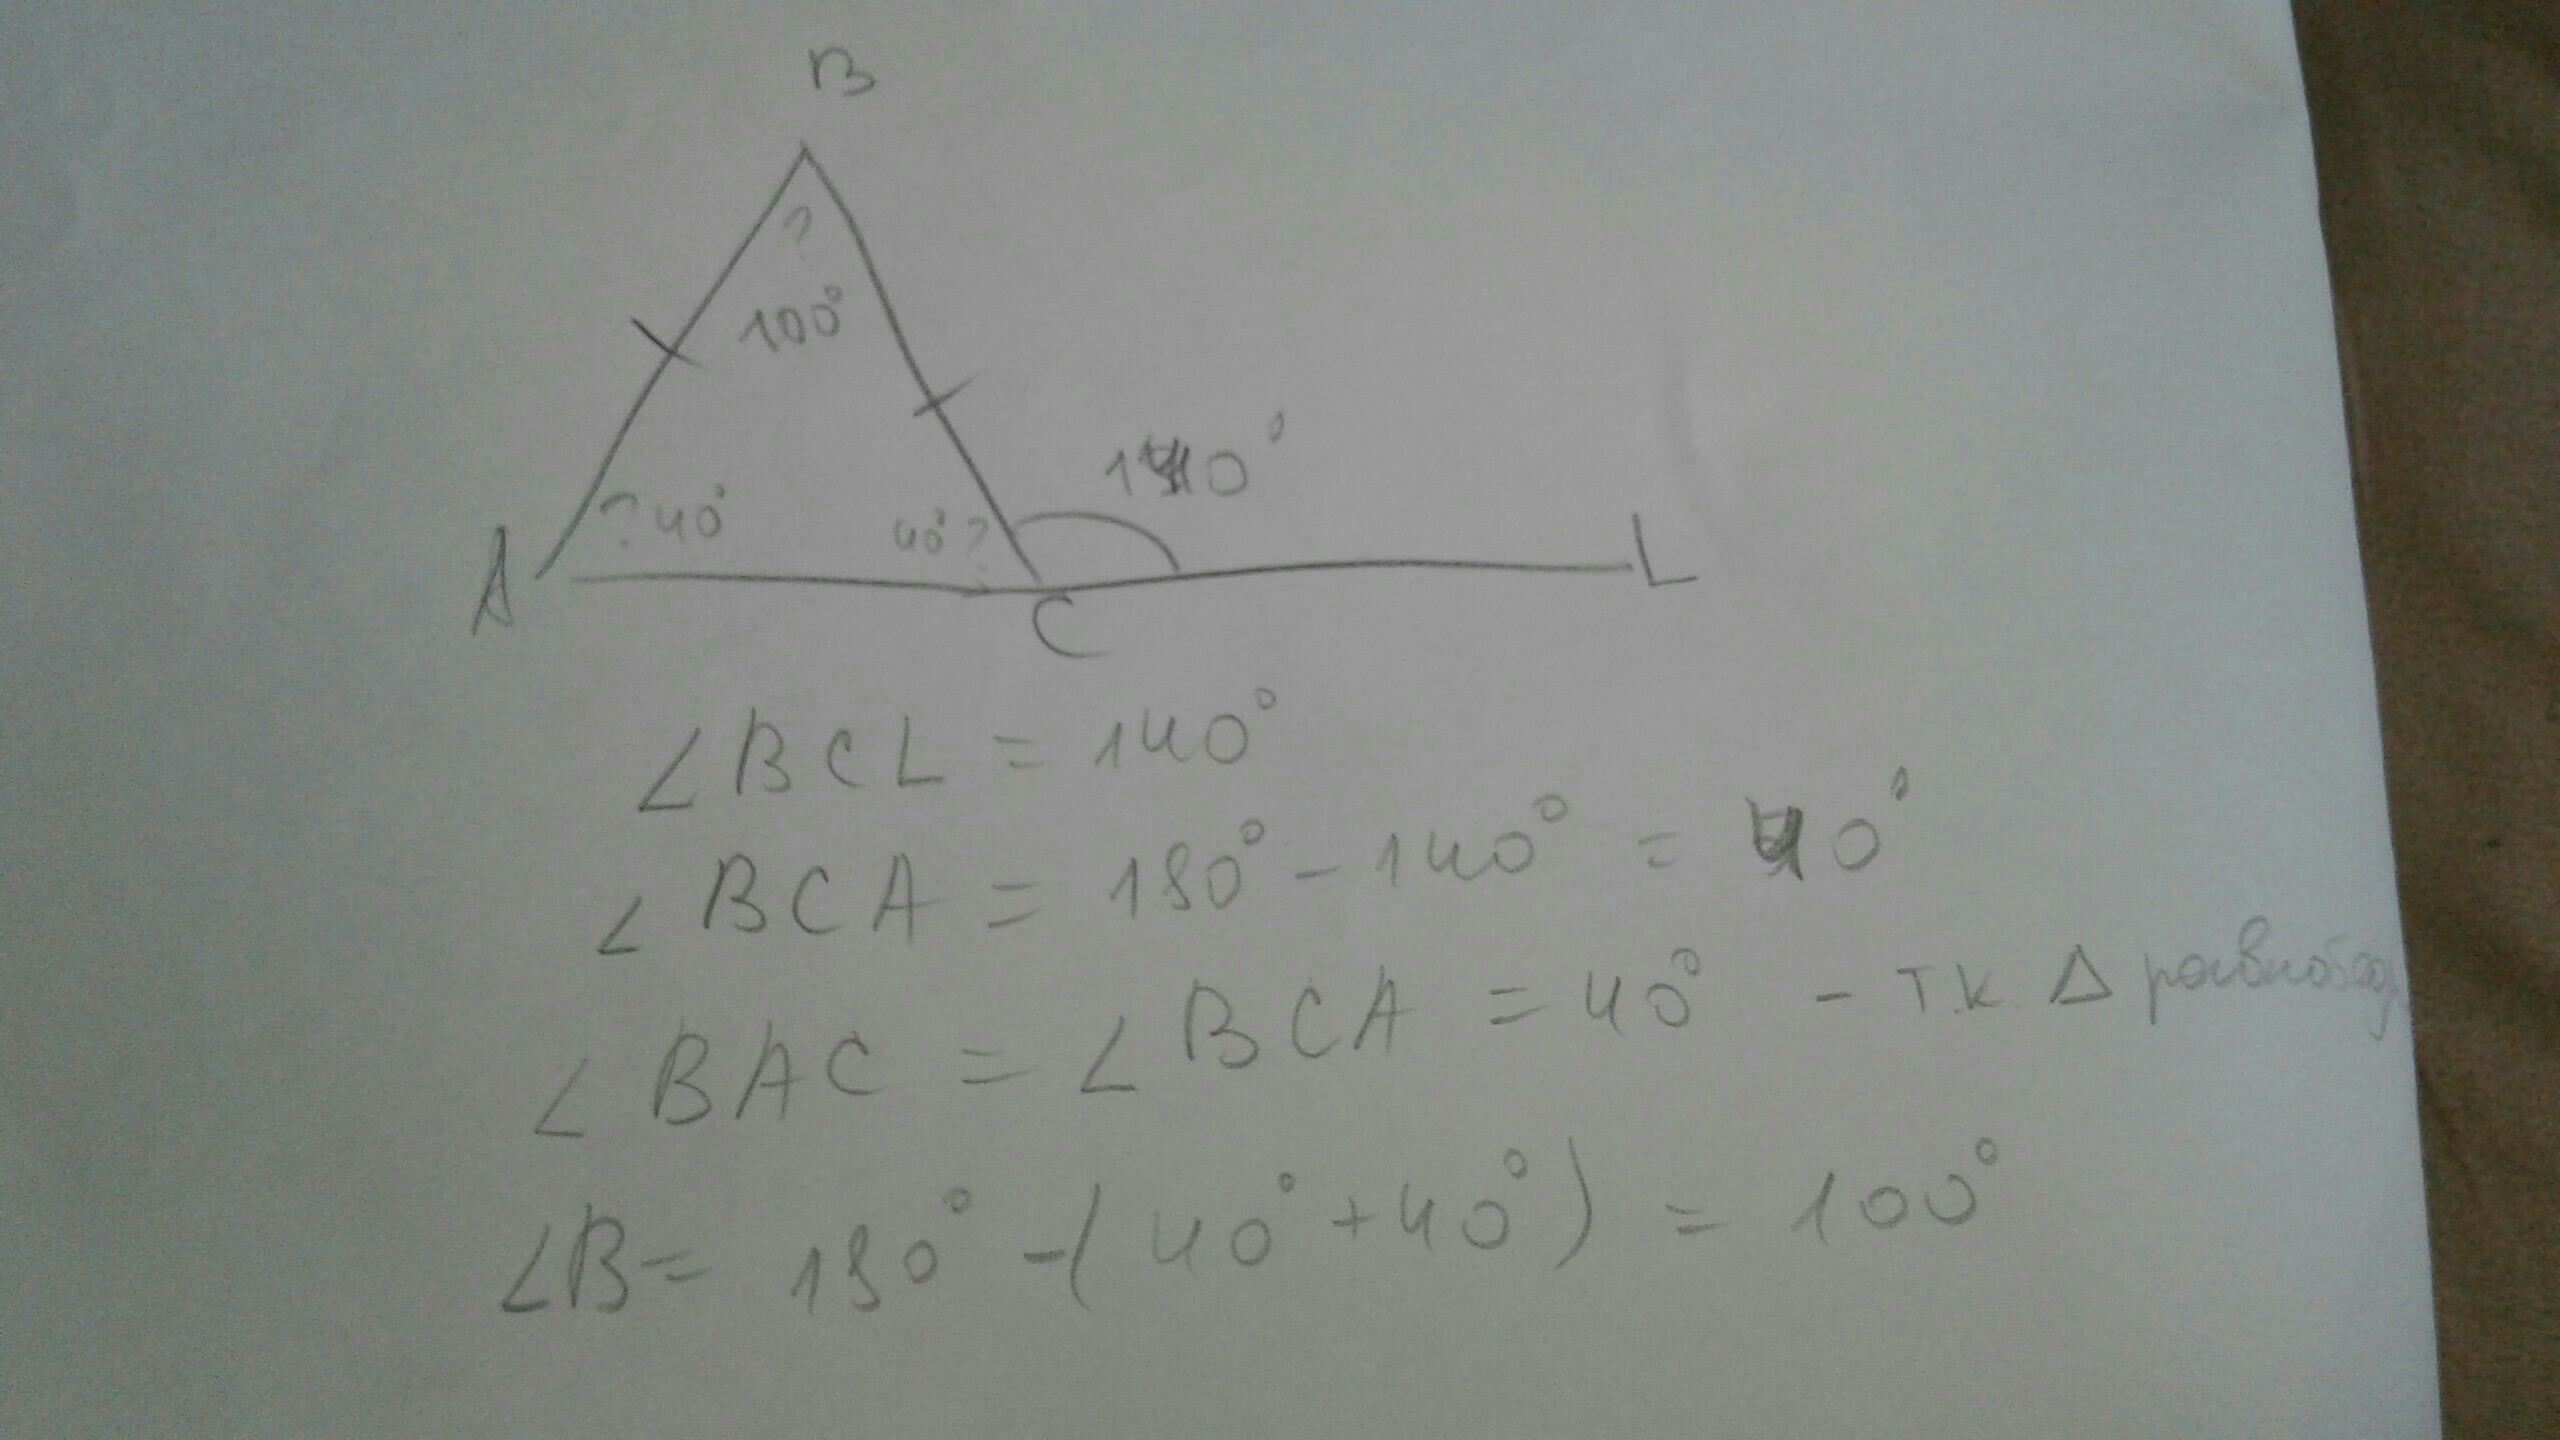 B
?
100°
140°
? 40°
40° ?
A
C
L
∠BCL = 140°
∠BCA = 180° - 140° = 40°
∠BAC = ∠BCA = 40° - т.к. Δ равнобед
∠B = 180° - (40° + 40°) = 100°